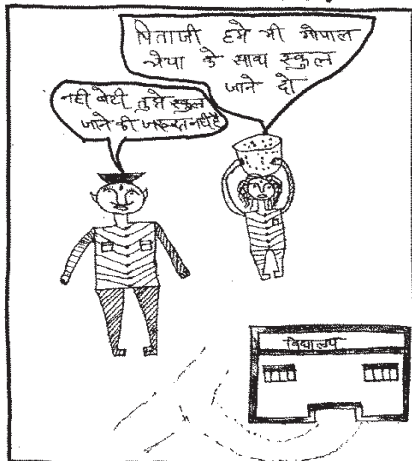 पिताजी हमे भी गोपाल
भैया के साथ स्कूल
जाने दो
नही बेटी तुम्हे स्कूल
जाने की जरूरत नही है
विद्यालय